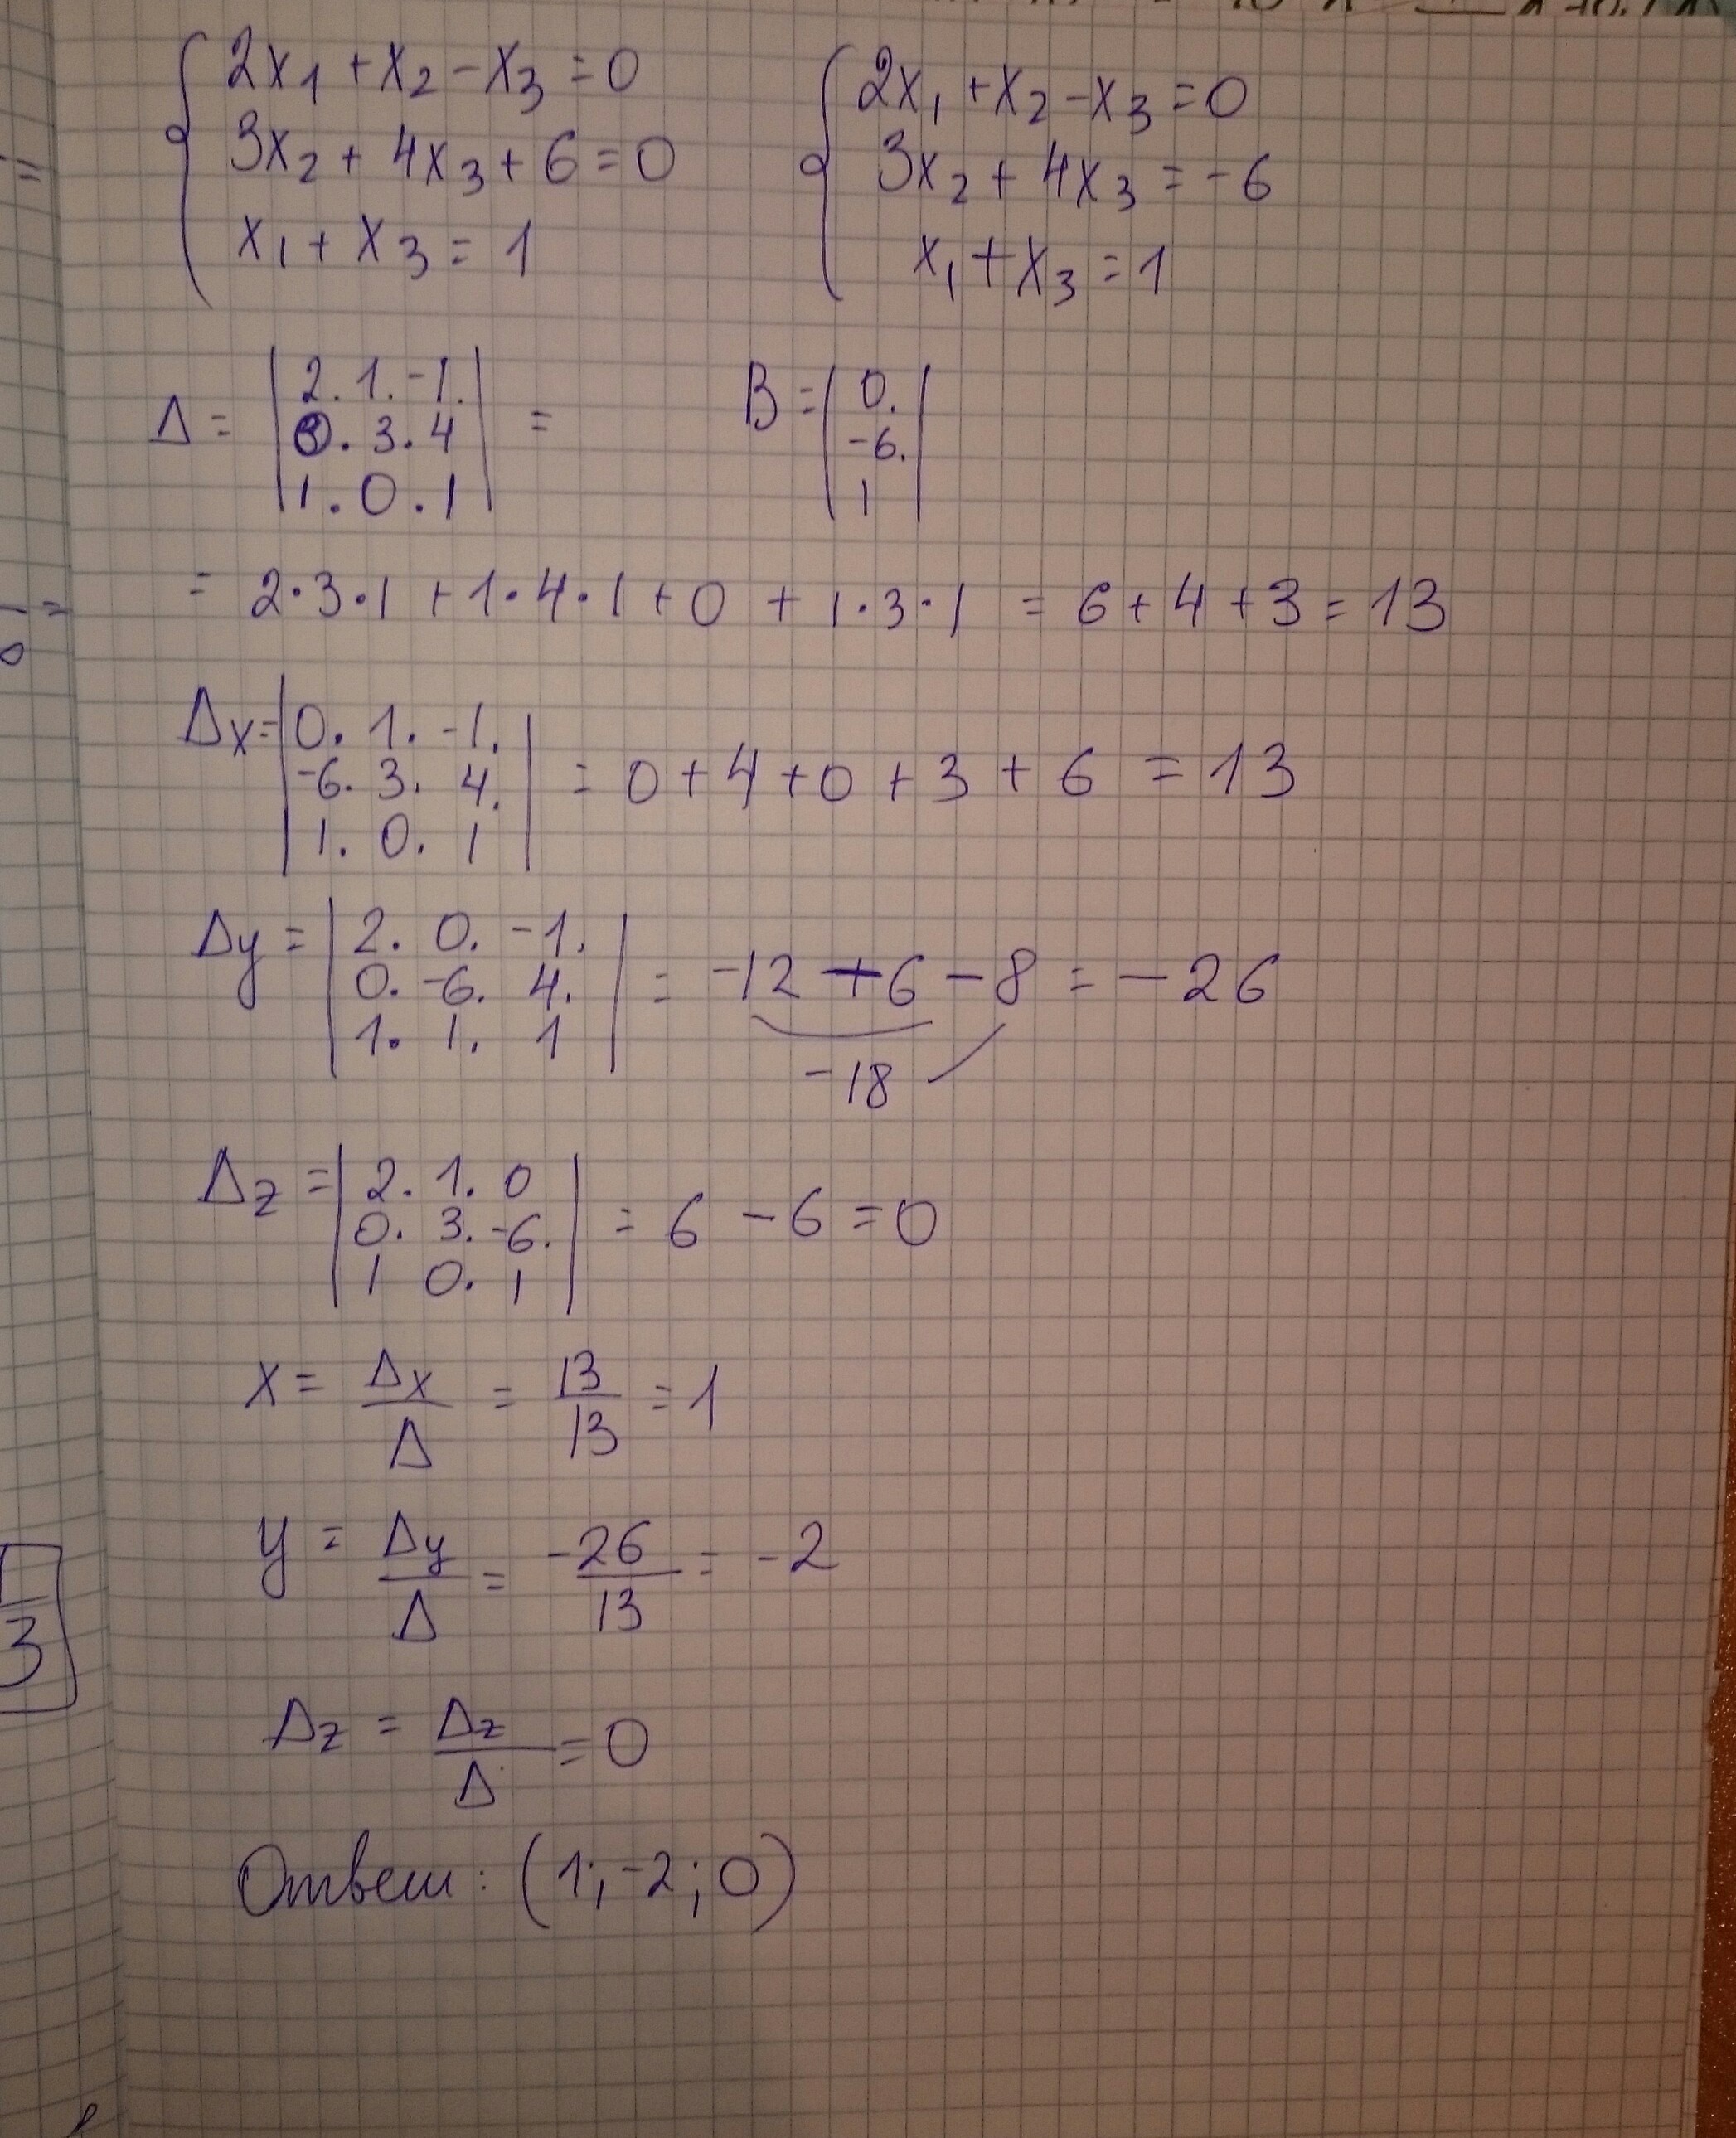 2x₁ + x₂ - x₃ = 0
3x₂ + 4x₃ + 6 = 0
x₁ + x₃ = 1
2x₁ + x₂ - x₃ = 0
3x₂ + 4x₃ = -6
x₁ + x₃ = 1
Δ = | 2. 1. -1. |
| 0. 3. 4 | =
| 1. 0. 1 |
B = | 0. |
| -6. |
| 1 |
= 2·3·1 + 1·4·1 + 0 + 1·3·1 = 6 + 4 + 3 = 13
Δx = | 0. 1. -1. |
| -6. 3. 4. | = 0 + 4 + 0 + 3 + 6 = 13
| 1. 0. 1 |
Δy = | 2. 0. -1. |
| 0. -6. 4. | = -12 - 6 - 8 = -26
| 1. 1. 1 |
-18
Δz = | 2. 1. 0 |
| 0. 3. -6. | = 6 - 6 = 0
| 1 0. 1 |
x = Δx/Δ = 13/13 = 1
y = Δy/Δ = -26/13 = -2
Δz = Δz/Δ = 0
Ответ: (1; -2; 0)
3